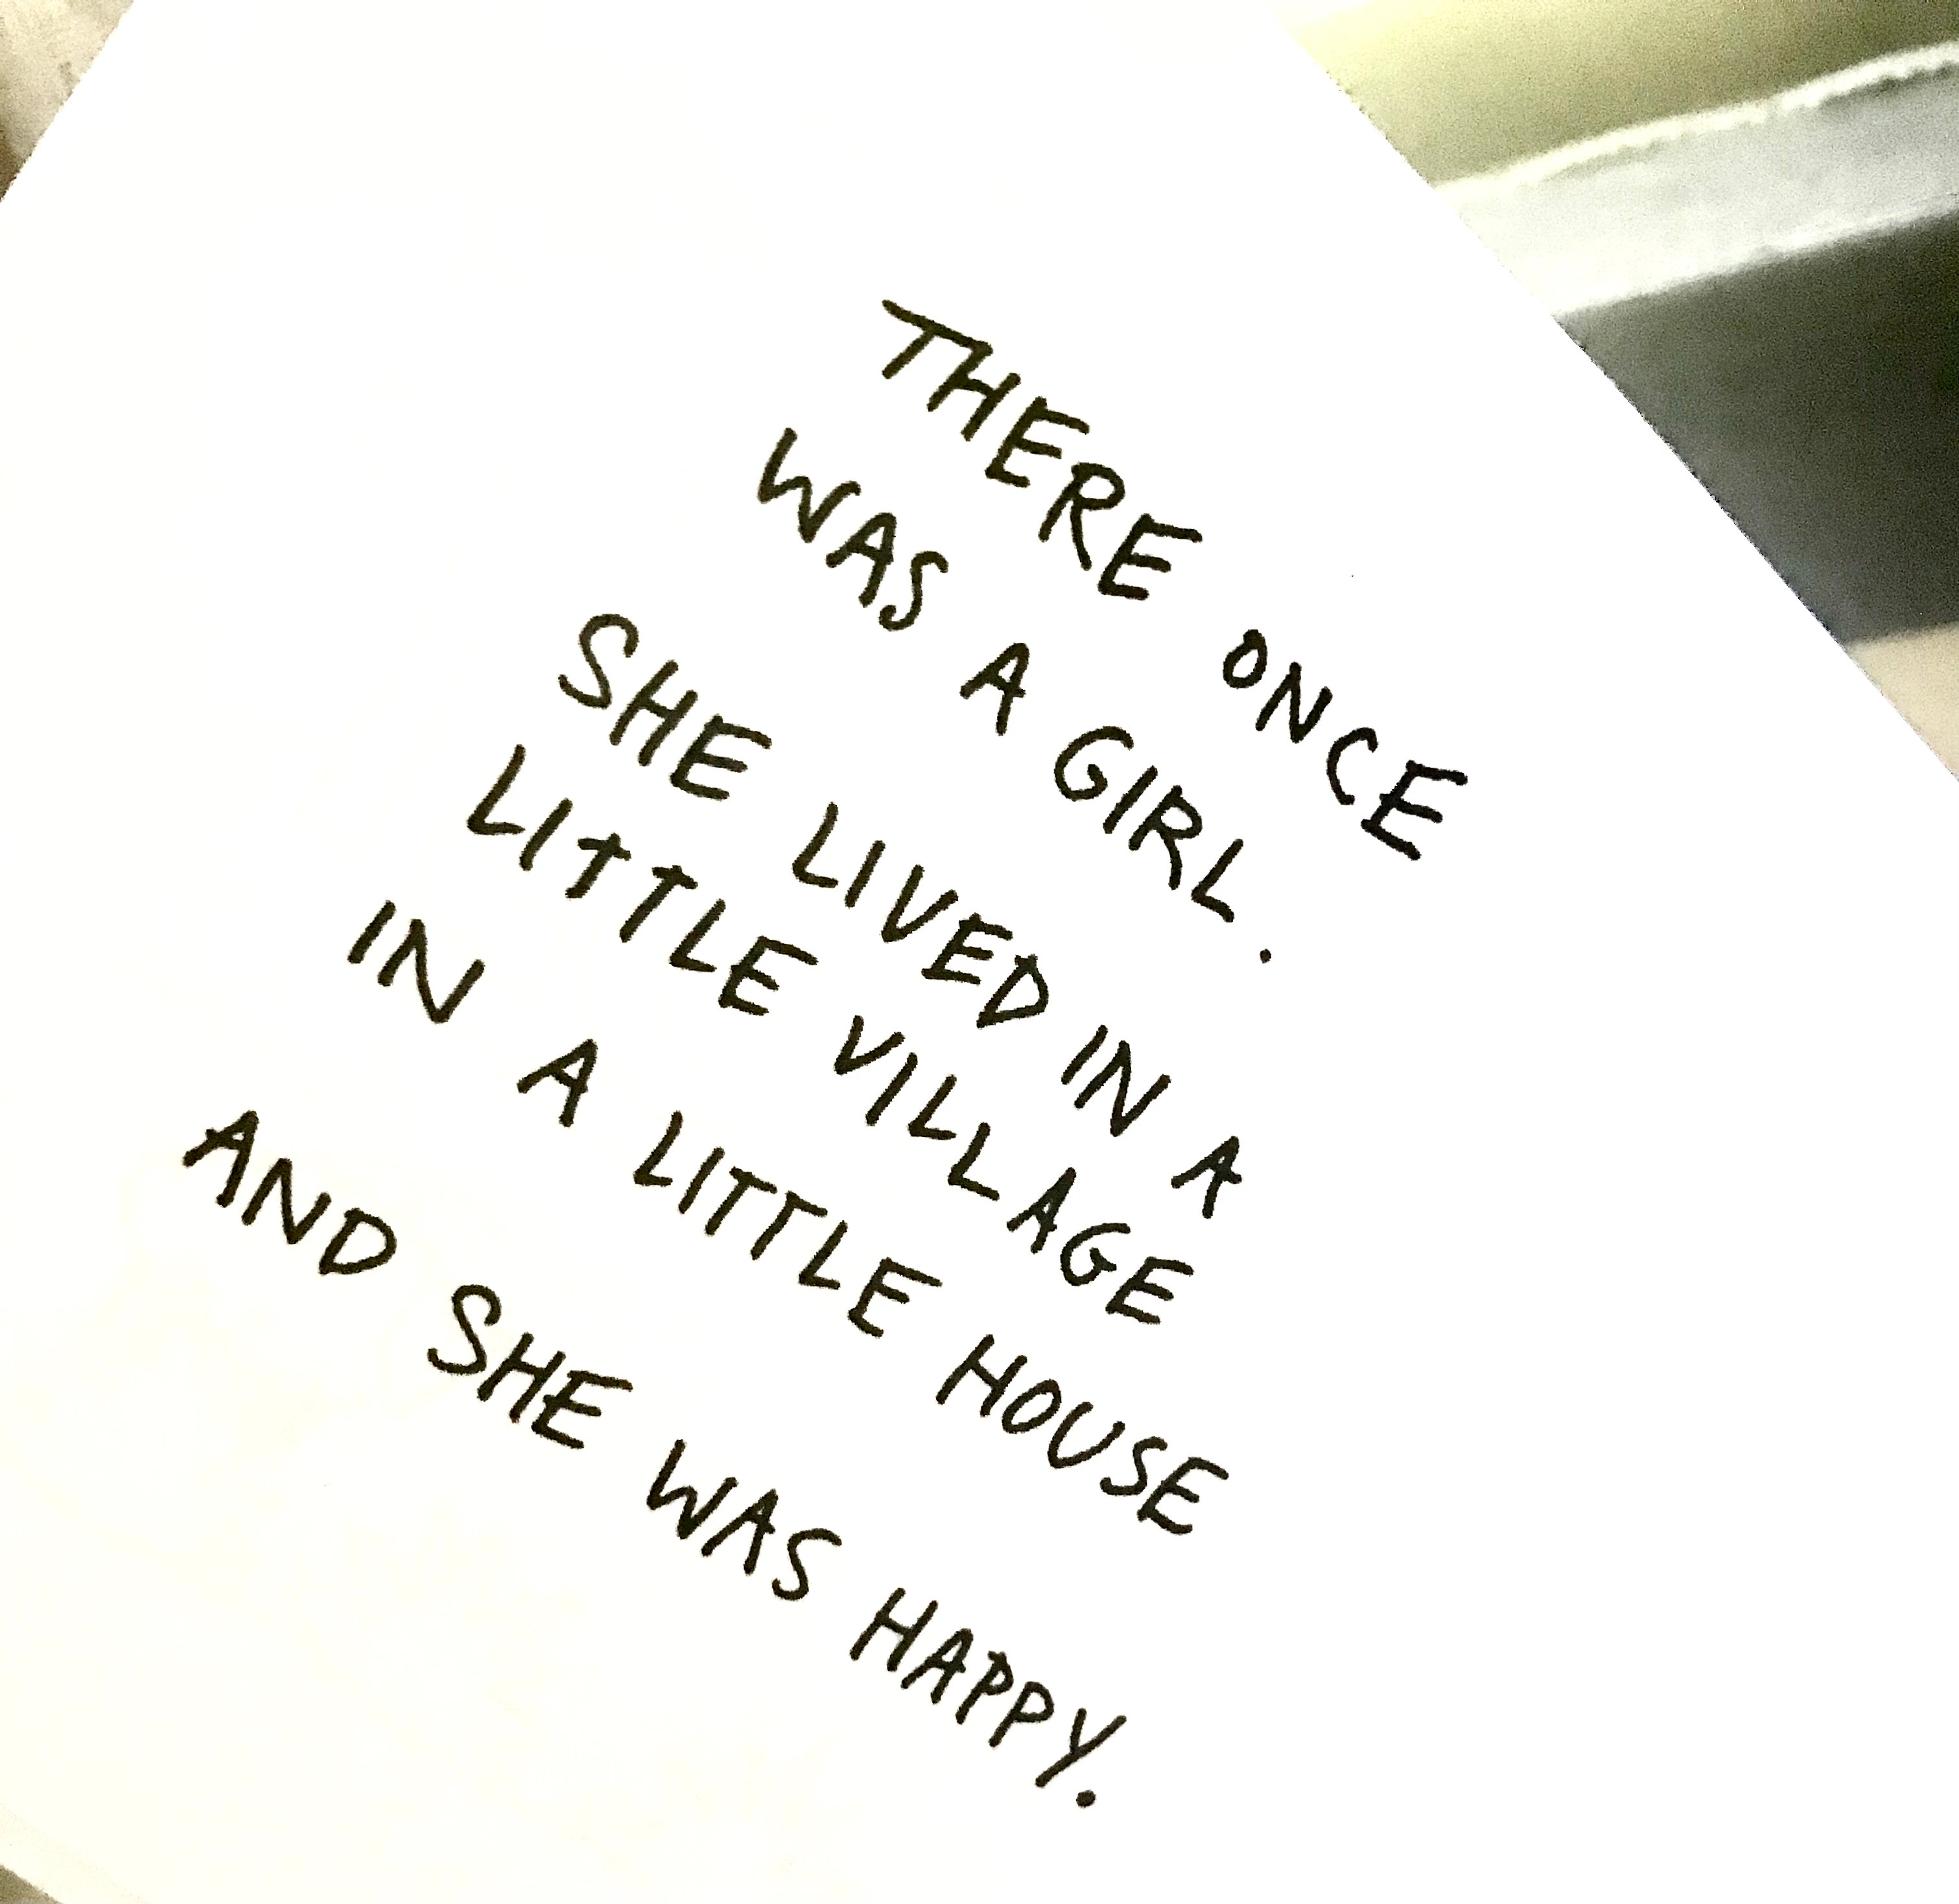 THERE ONCE
WAS A GIRL.
SHE LIVED IN A
LITTLE VILLAGE
IN A LITTLE HOUSE
AND SHE WAS HAPPY.